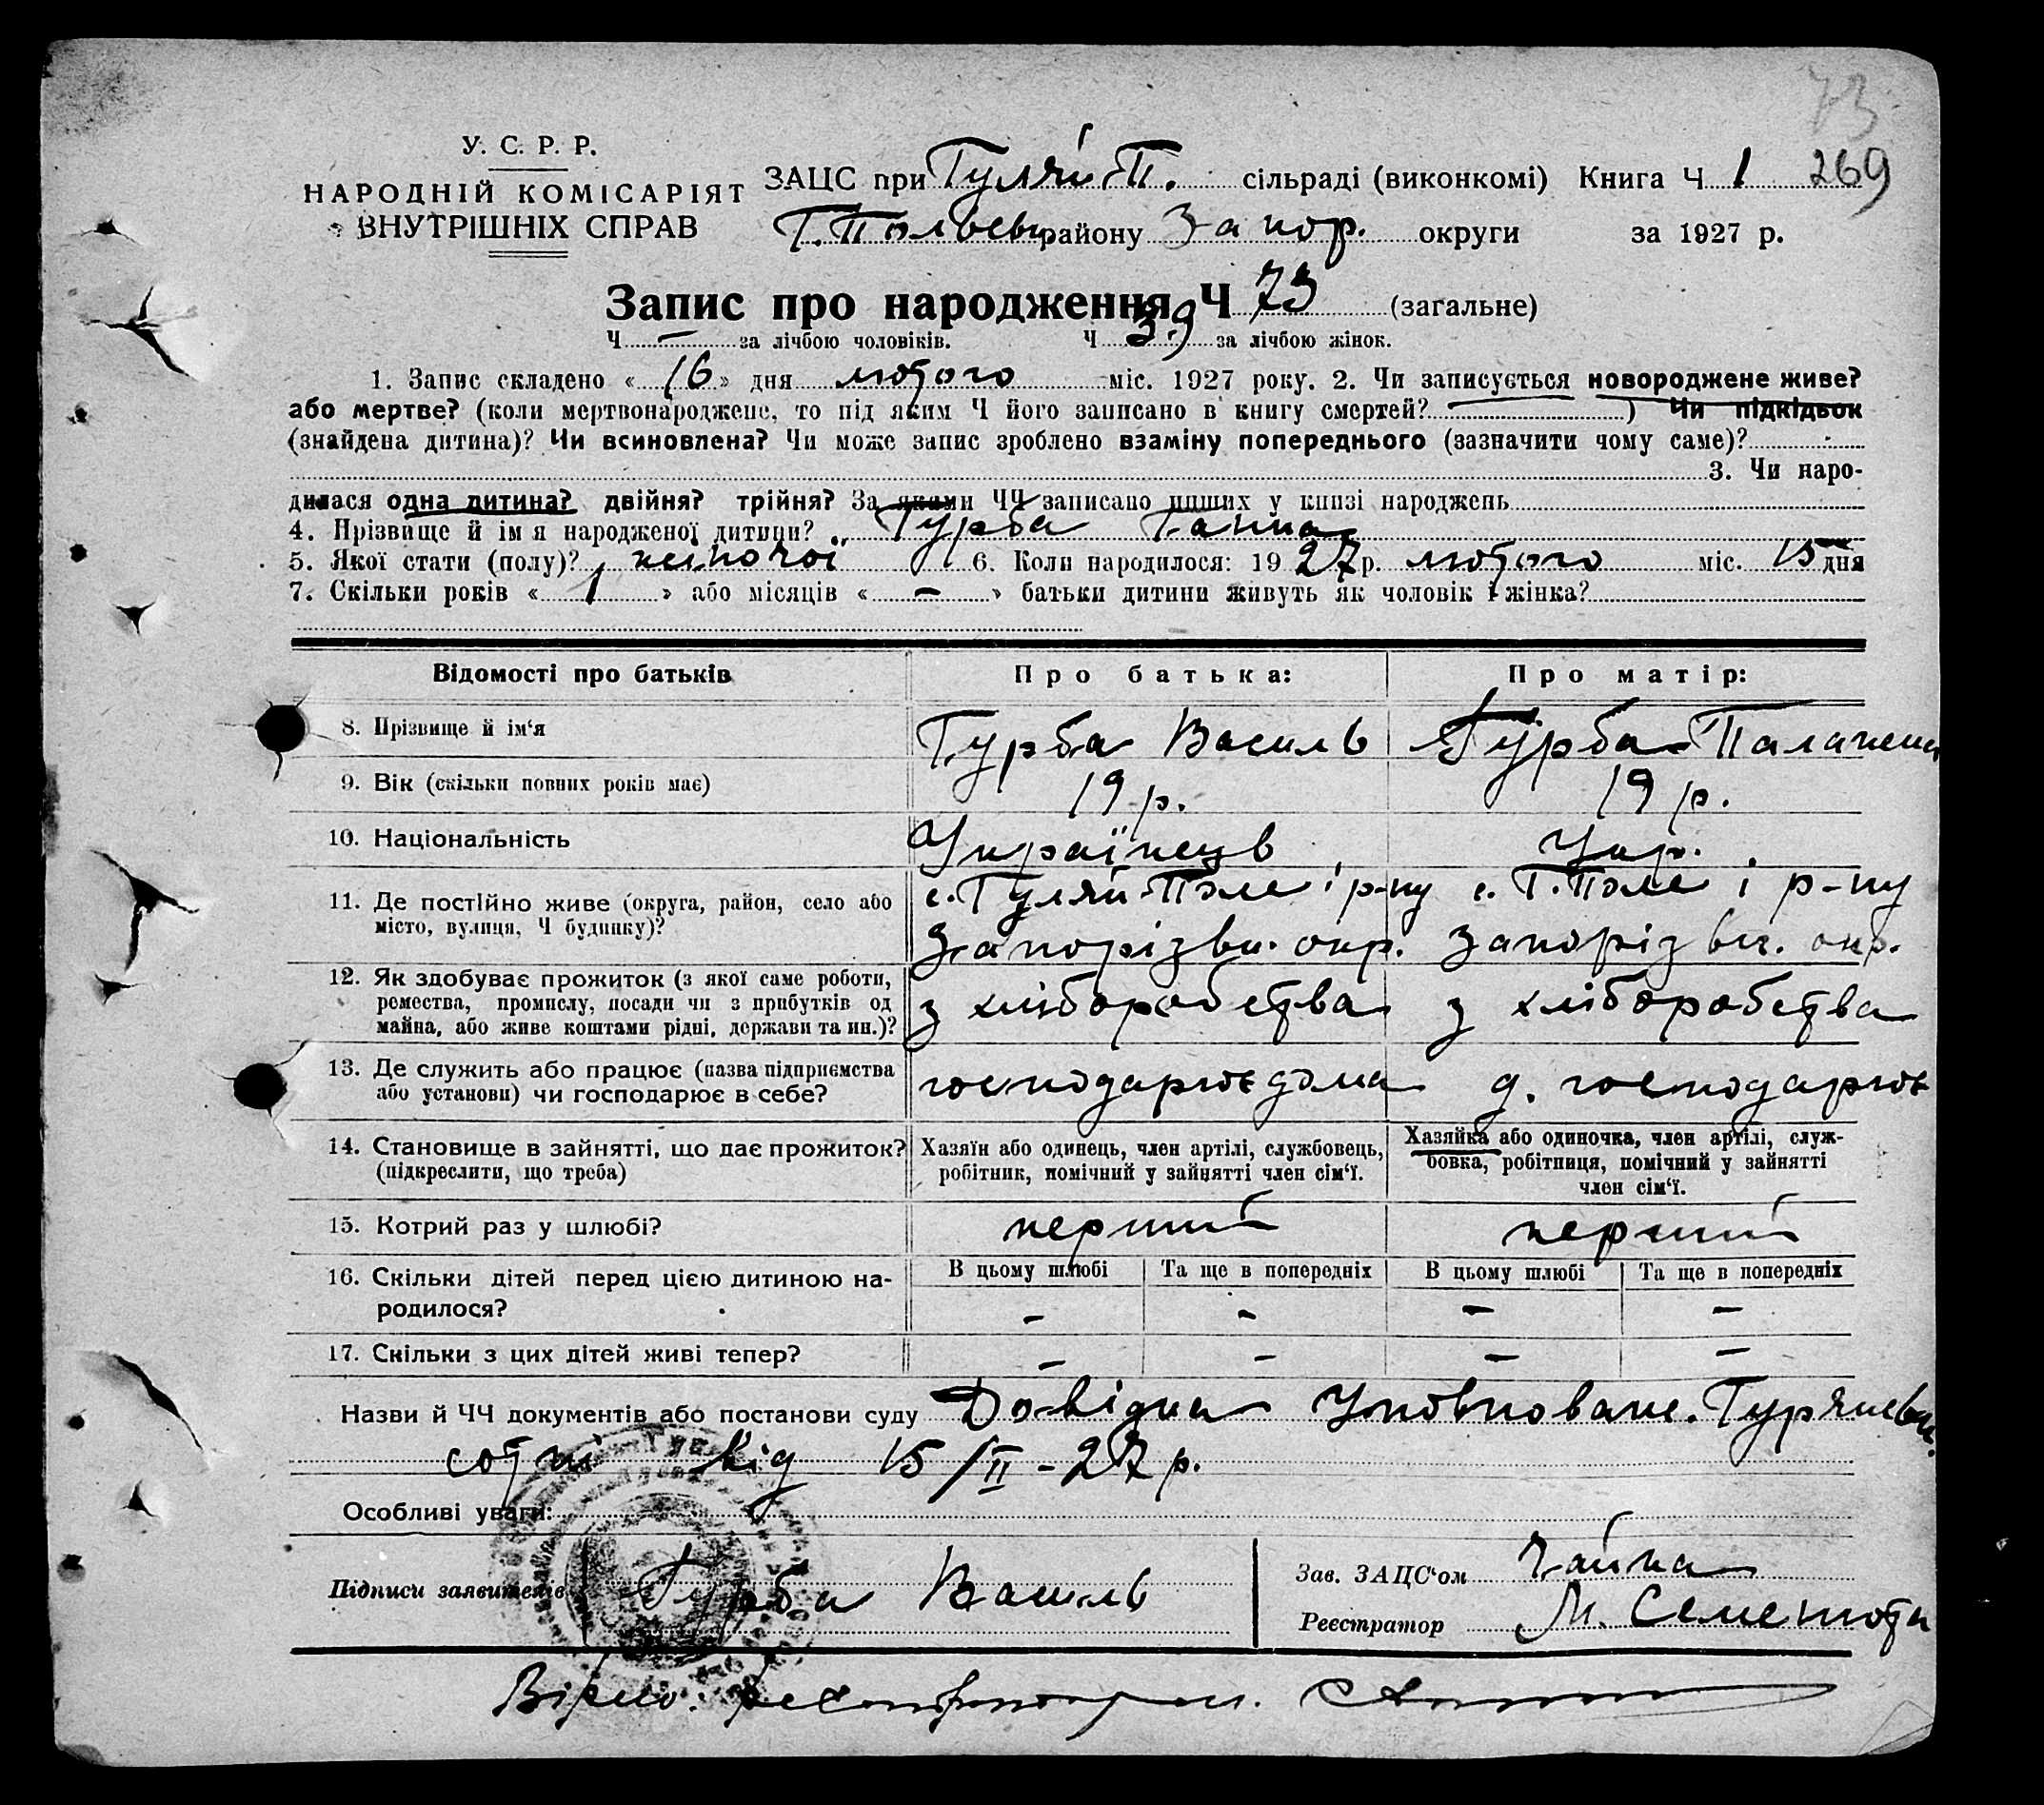 73
У. С. Р. Р.
НАРОДНІЙ КОМІСАРІЯТ
ВНУТРІШНІХ СПРАВ
ЗАЦС при Гуляй-П. сільраді (виконкомі) Книга Ч 1 269
Г. Польськ району Запор. округи за 1927 р.
Запис про народження Ч 73 (загальне)
Ч — за лічбою чоловіків. Ч 39 за лічбою жінок.
1. Запис складено « 16 » дня лютого міс. 1927 року. 2. Чи записується новороджене живе?
або мертве? (коли мертвонароджене, то під яким Ч його записано в книгу смертей? ) Чи підкідьок
(знайдена дитина)? Чи всиновлена? Чи може запис зроблено взаміну попереднього (зазначити чому саме)?
3. Чи наро-
дилася одна дитина? двійня? трійня? За якими ЧЧ записано инших у книзі народжень
4. Прізвище й ім я народженої дитини? Гурба Ганна
5. Якої стати (полу)? жіночої 6. Коли народилося: 1927 р. лютого міс. 15 дня
7. Скільки років « 1 » або місяців « — » батьки дитини живуть як чоловік і жінка?
Відомості про батьків Про батька: Про матір:
8. Прізвище й ім‘я Гурба Василь Гурба
9. Вік (скільки повних років має) 19 р. 19 р.
10. Національність Українець Укр.
11. Де постійно живе (округа, район, село або місто, вулиця, Ч будинку)? с. Гуляй-Поле і р-ну с. Г. Поле і р-ну
Запорізьк. окр. Запорізьк. окр.
12. Як здобуває прожиток (з якої саме роботи,
ремества, промислу, посади чи з прибутків од
майна, або живе коштами рідні, держави та ин.)? з хліборобства з хліборобства
13. Де служить або працює (назва підприємства
або установи) чи господарює в себе? господарює дома д. господарює
14. Становище в зайнятті, що дає прожиток?
(підкреслити, що треба)
Хазяїн або одинець, член артілі, службовець,
робітник, помічний у зайнятті член сім‘ї.
Хазяйка або одиночка, член артілі, служ-
бовка, робітниця, помічний у зайнятті
член сім‘ї.
15. Котрий раз у шлюбі? перший перший
16. Скільки дітей перед цією дитиною на-
родилося?
В цьому шлюбі Та ще в попередніх В цьому шлюбі Та ще в попередніх
— — — —
17. Скільки з цих дітей живі тепер? — — — —
Назви й ЧЧ документів або постанови суду Довідка Уповноваж.
сотні від 15/II-27 р.
Особливі уваги:
Підписи заявителів Гурба Василь
Зав. ЗАЦС‘ом Чайка
Реєстратор М. Семенюта
Вірно: